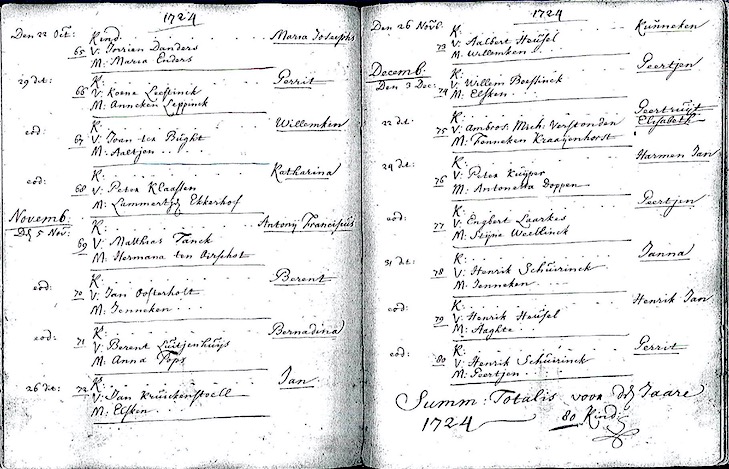 1724
Den 22 Oct: Kind . . . . . . Maria Josephs
65 V: Jorrien Danders
M: Maria Enders
29 dt: K: . . . . . . Gerrit
66 V: Koene Leessinck
M: Anneken Leppinck
eod: K: . . . . . . Willemken
67 V: Joan ter Büght
M: Aaltjen . . .
eod: K: . . . . . . Katharina
68 V: Peter Klaassen
M: Lammertje Ekkerhof
Novemb.
Den 5 Nov: K: . . . . . . Antony Franciscus
69 V: Matthias Tanck
M: Hermana ten Oerschot
eod: K: . . . . . . Berent
70 V: Jan Oosterholt
M: Jenneken . . .
eod: K: . . . . . . Bernadina
71 V: Berent Luitjenhuys
M: Anna Tops
26 dt: 72 K: . . . . . . Jan
V: Jan Krüickenstoell
M: Elsken . . .
1724
Den 26 Novb. K: . . . . . . Kunneken
73 V: Aalbert Heusel
M: Willemken . . .
Decemb. K: . . . . . . Geertjen
Den 3 Dec: 74 V: Willem Boessinck
M: Elsken . . .
22 dt: K: . . . . . . Geertruyt
75 V: Ambros: Mich: Verstonden Elisabeth
M: Fenneken Kraayenhorst
24 dt: K: . . . . . . Harmen Jan
76 V: Peter Kuyper
M: Antonetta Doppen
eod: K: . . . . . . Geertjen
77 V: Engbert Laarkes
M: Stijne Weellinck
31 dt: K: . . . . . . Janna
78 V: Henrik Schuirinck
M: Jenneken . . .
eod: K: . . . . . . Henrik Jan
79 V: Henrik Heusel
M: Aaghte . . .
eod: K: . . . . . . Gerrit
80 V: Henrik Schuirinck
M: Geertjen . . .
Summ: Totalis voor de Jaare
1724 80 Kind: